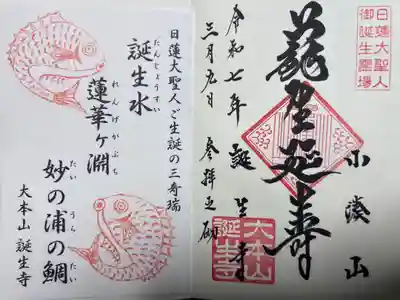 日蓮大聖人
御誕生霊場
小湊山
龍聖延壽
誕生寺
大本山
誕生寺
令和七年
三月九日 参拝之砌
日蓮大聖人ご生誕の三奇瑞
たんじょうすい
誕生水
れんげがぶち
蓮華ヶ淵
たい うら たい
妙の浦の鯛
大本山 誕生寺